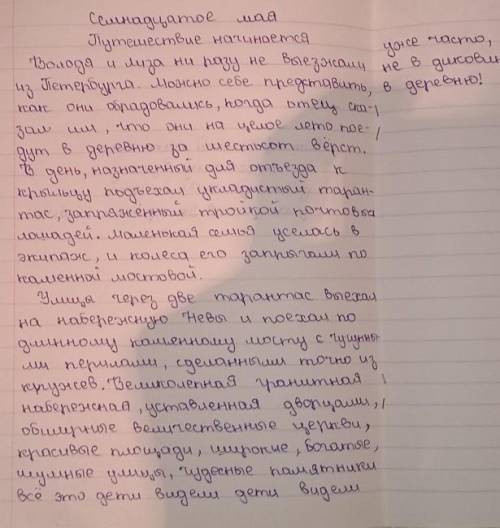 Семнадцатое мая
Путешествие начинается
Володя и Лиза ни разу не выезжали
из Петербурга. Можно себе представить,
как они обрадовались, когда отец ска-
зал им, что они на целое лето пое-
дут в деревню за шестьсот вёрст.
В день, назначенный для отъезда к
крыльцу подъехал укладистый таран-
тас, запряжённый тройкой почтовых
лошадей. Маленькая семья уселась в
экипаж, и колеса его запрыгали по
каменной мостовой.
Улицы через две тарантас выехал
на набережную Невы и поехал по
длинному каменному мосту с чугунны
ми перилами, сделанными точно из
кружев. Великолепная гранитная
набережная, уставленная дворцами,
обширные величественные церкви,
красивые площади, широкие, богатые,
шумные улицы, чудесные памятники
всё это дети видели дети видели
уже часто,
не в диковин
в деревню!